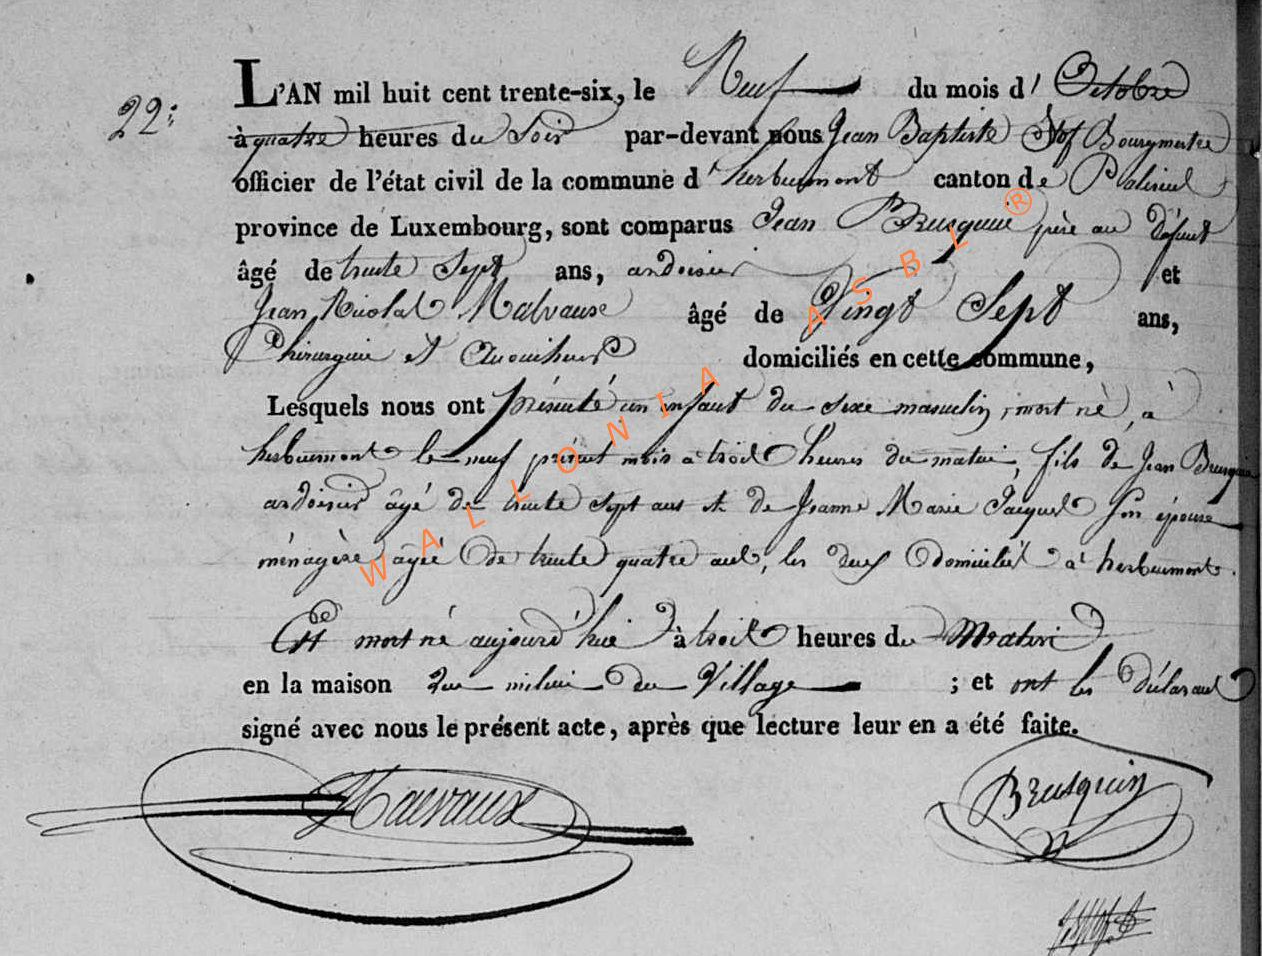 22:
L'AN mil huit cent trente-six, le Neuf du mois d' Octobre
à quatre heures du Soir par-devant nous Jean Baptiste Bourgmestre
officier de l'état civil de la commune d' herbeumont canton de Paliseul
province de Luxembourg, sont comparus Jean Brusquin père au défunt
âgé de trente Sept ans, ardoisier et
Jean Nicolas Malvaux âgé de Vingt Sept ans,
Chirurgien et Accoucheur domiciliés en cette commune,
Lesquels nous ont présenté un enfant du sexe masculin, mort né, à
herbeumont le neuf présent mois à trois heures du matin, fils de Jean Brusquin
ardoisier âgé de trente Sept ans et de Jeanne Marie Jacques Son épouse
ménagère agée de trente quatre ans, les deux domiciliés à herbeumont.
Est mort né aujourd'hui à trois heures du Matin
en la maison au milieu du Village ; et ont les déclarans
signé avec nous le présent acte, après que lecture leur en a été faite.
Malvaux Brusquin
WALLONIA ASBL ®